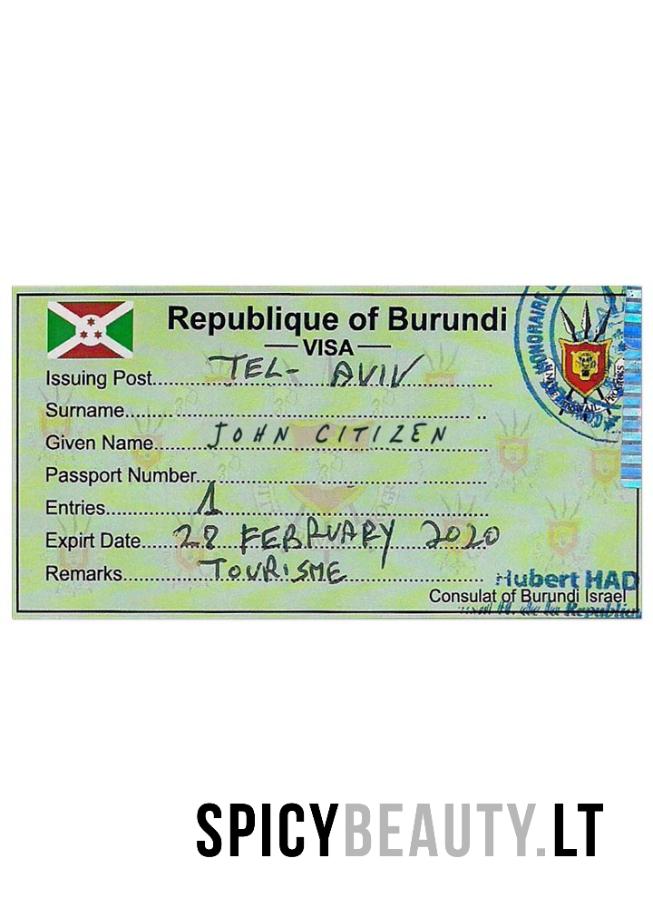 Republique of Burundi
VISA
Issuing Post.......... TEL-AVIV
Surname..........
Given Name.......... JOHN CITIZEN
Passport Number..........
Entries.......... 1
Expirt Date.......... 28 FEBRUARY 2020
Remarks.......... TOURISME
Hubert HAD
Consulat of Burundi Israel
de la Republiqu
SPICYBEAUTY.LT